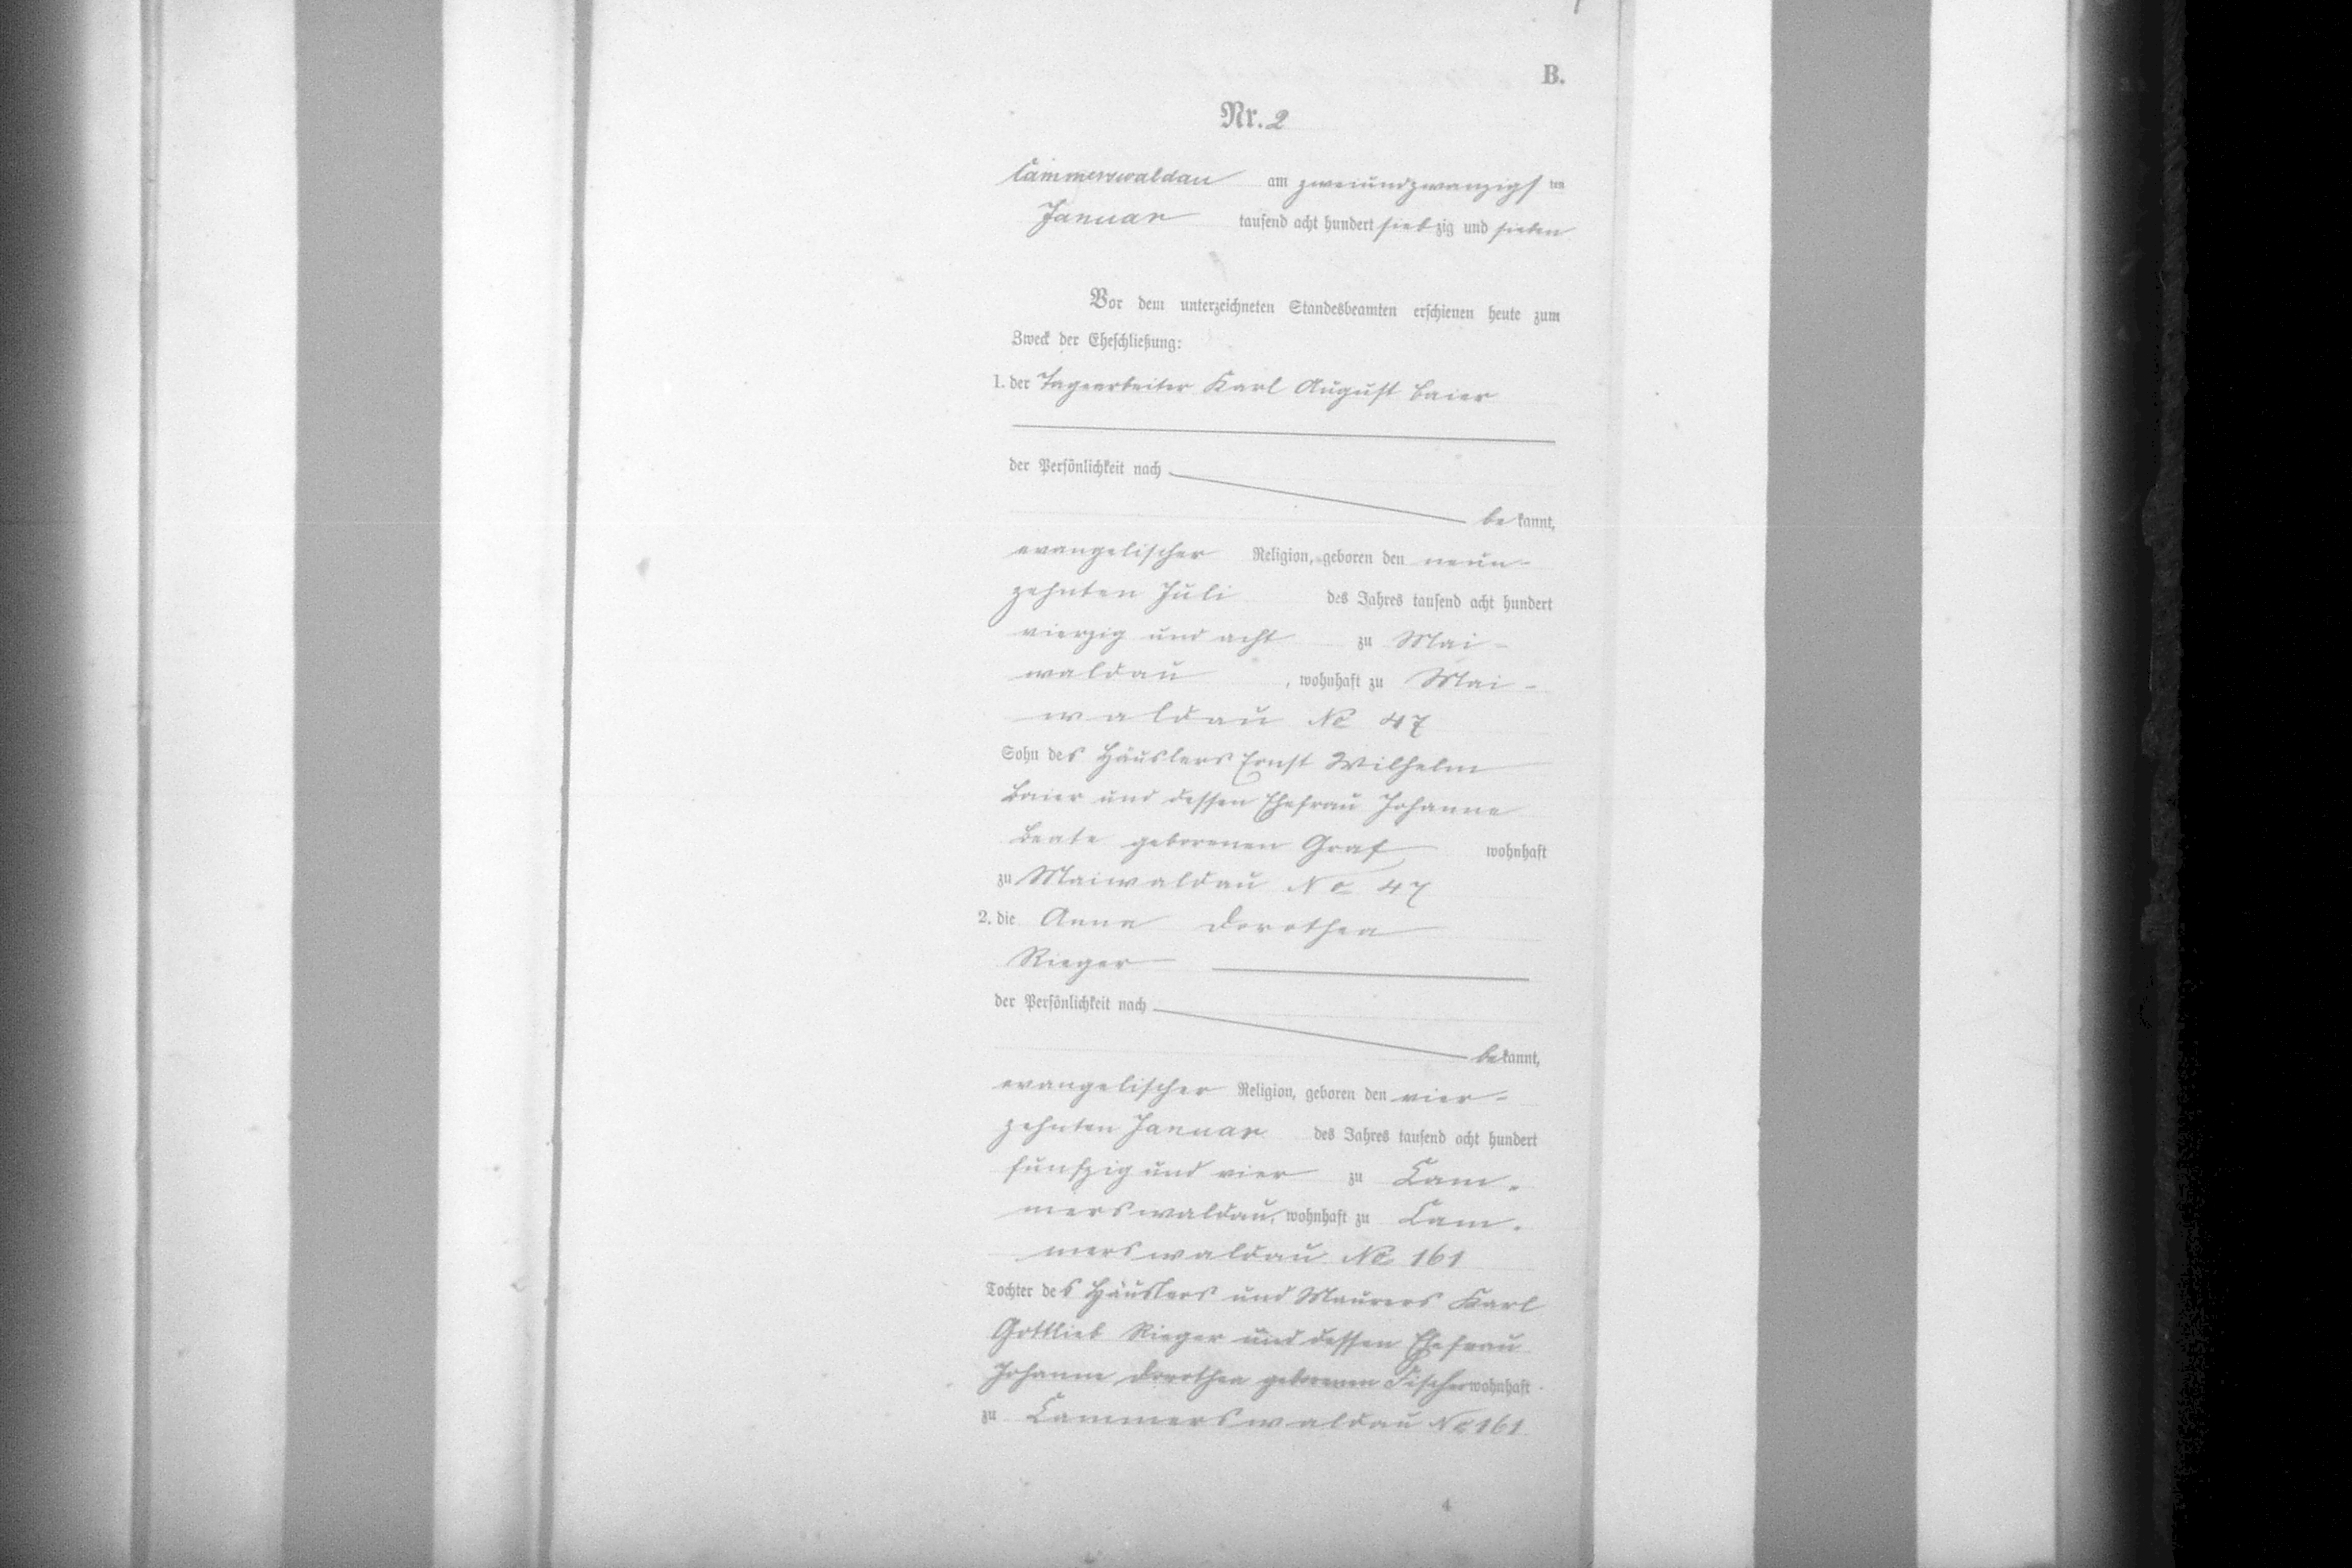 B.
Nr. 2
Cammerswaldau am zweiundzwanzigsten
Januar tausend acht hundert siebzig und sieben
Vor dem unterzeichneten Standesbeamten erschienen heute zum
Zweck der Eheschließung:
1. der Tagearbeiter Karl August Baier
der Persönlichkeit nach
bekannt,
evangelischer Religion, geboren den neun-
zehnten Juli des Jahres tausend acht hundert
vierzig und acht zu Mai-
waldau, wohnhaft zu Mai-
waldau No 47
Sohn des Häuslers Ernst Wilhelm
Baier und dessen Ehefrau Johanne
Beate geborenen Graf wohnhaft
zu Maiwaldau No 47
2. die Anna Dorothea
Rieger
der Persönlichkeit nach
bekannt,
evangelischer Religion, geboren den vier-
zehnten Januar des Jahres tausend acht hundert
fünfzig und vier zu Cam-
merswaldau, wohnhaft zu Cam-
merswaldau No 161
Tochter des Häuslers und Maurers Karl
Gottlieb Rieger und dessen Ehefrau
Johanne Dorothea geborenen Fischer wohnhaft
zu Cammerswaldau No 161
4